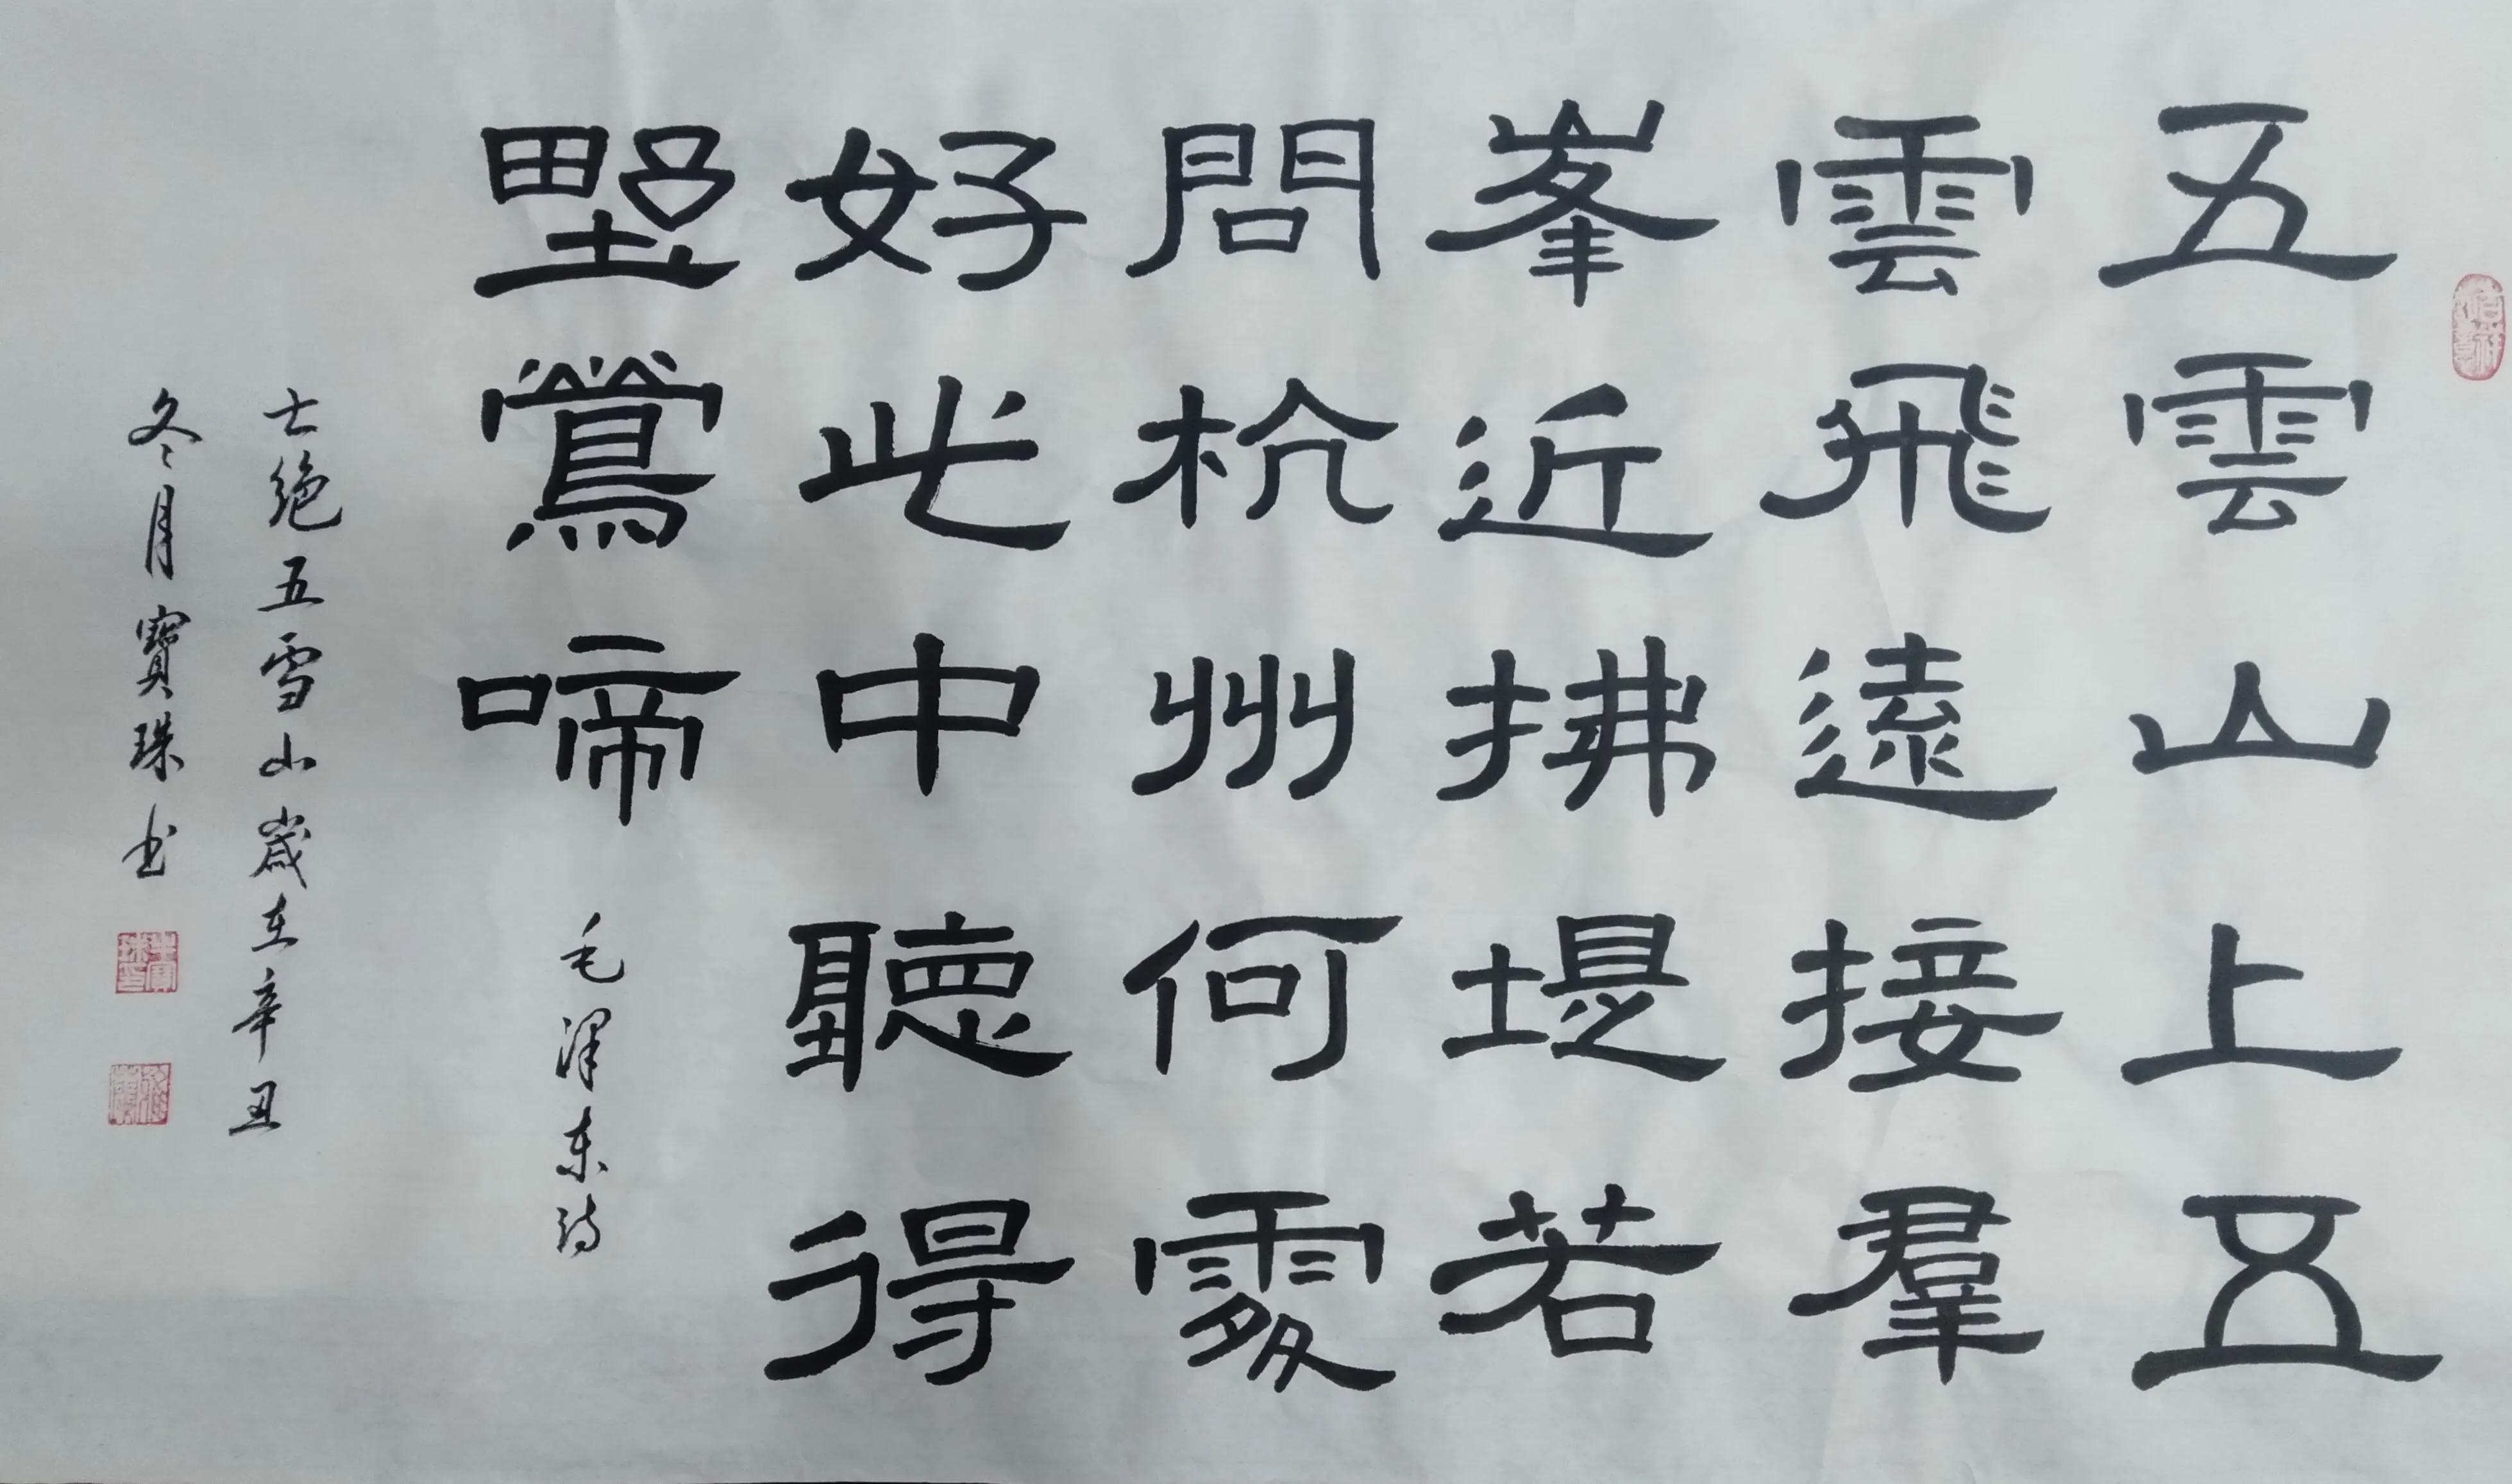 五雲山上五
雲飛遠接羣
峯近拂堤若
問杭州何處
好此中聽得
野鶯啼
毛泽东诗
七绝五雪山歲在辛丑
冬月寶珠书